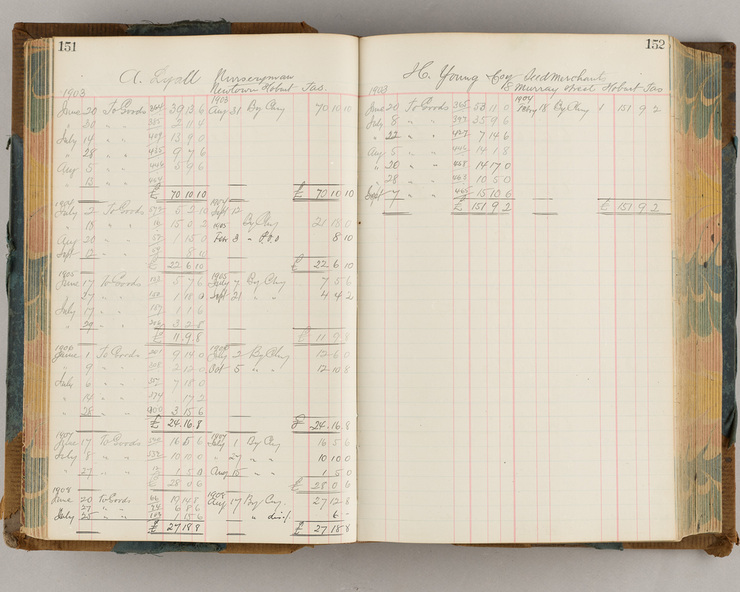 151
A. Lyall Nurseryman
Newtown Hobart Tas.
1903 1903
June 20 To Goods 39 13 6 Aug 31 By Chy 70 10 10
July 14 " " 13 9 0
" 28 " " 9 7 6
Aug 5 " "
" 13 " "
£ 70 10 10 £ 70 10 10
1904 1904
July 2 To Goods 5 2 10 Sept 12 By Chy 21 18 0
" 18 " " 15 0 2 1905
Aug 20 " " 1 15 0 Feb 3 " P.O.O 8 10
Sept " " 8 10
£ 22 6 10 £ 22 6 10
1905 1905
June 17 To Goods 5 7 6 July 7 By Chy 7 5 6
" 27 " " 1 18 0 Sept 21 " " 4 4 2
July 17 " " 1 1 6
" 29 " " 3 2 8
£ 11 9 8 £ 11 9 8
1906 1906
June 1 To Goods 9 14 0 July 2 By Chy 12 6 0
" 9 " " 2 12 0 Oct 5 " " 12 10 8
July 6 " " 7 18 0
" 14 " " 17 2
" 28 " " 3 15 6
£ 24 16 8 £ 24 16 8
1907 1907
June 17 To Goods 16 5 6 July 1 By Chy 16 5 6
July 8 " " 10 10 0 " 27 " " 10 10 0
" 27 " " 1 5 0 Aug 15 " " 1 5 0
£ 28 0 6 £ 28 0 6
1908 1908
June 20 To Goods Aug 17 By Chy. 27 12 8
" 27 " " 6 8 6 " disct. 6 -
July 25 " " 1 15 6
£ 27 18 8 £ 27 18 8
152
H. Young & Coy Seed Merchants
18 Murray Street Hobart Tas
1903 1904
June 20 To Goods 53 11 0 May 18 By Chy 1 151 9 2
July 8 " " 25 9 6
" 22 " " 7 14 6
Aug 5 " " 14 1 8
" 20 " " 14 17 0
" 28 " " 10 5 0
Sept 7 " " 15 10 6
£ 151 9 2 £ 151 9 2